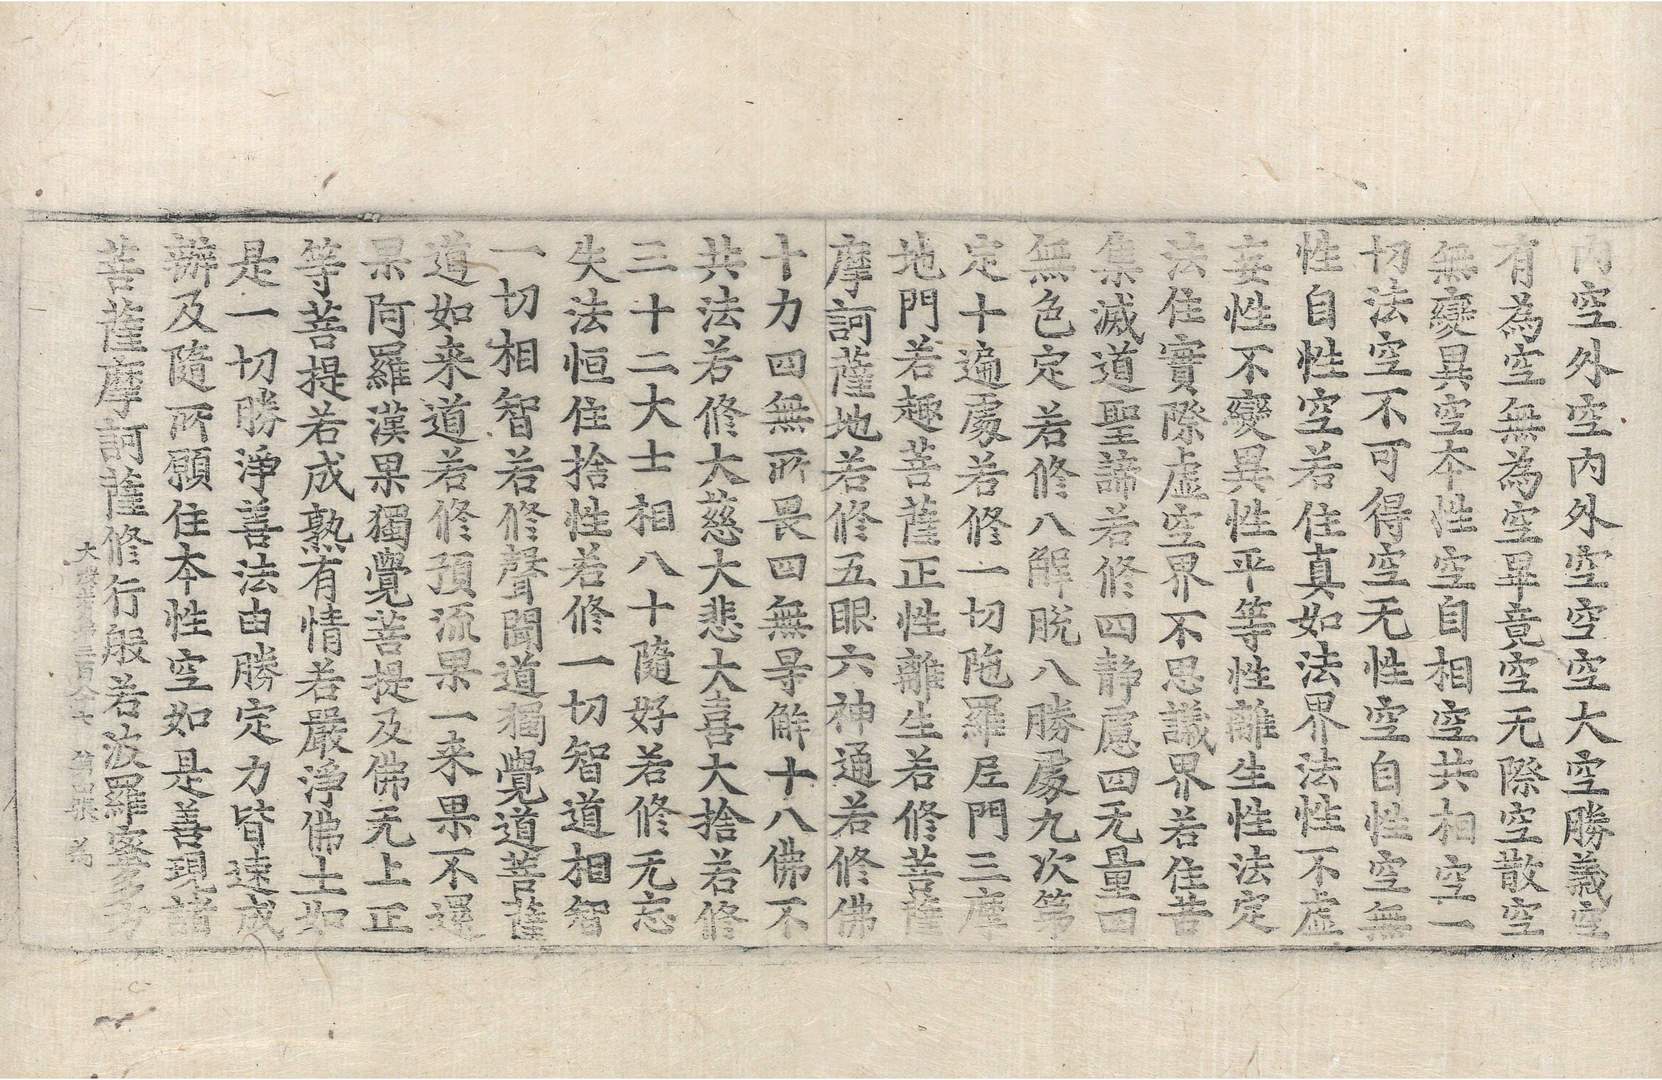 內空外空內外空空空大空勝義空
有為空無為空畢竟空无際空散空
無變異空本性空自相空共相空一
切法空不可得空无性空自性空無
性自性空若住真如法界法性不虛
妄性不變異性平等性離生性法定
法住實際虛空界不思議界若住苦
集滅道聖諦若修四靜慮四无量四
無色定若修八解脫八勝處九次第
定十遍處若修一切陁羅尼門三摩
地門若趣菩薩正性離生若修菩薩
摩訶薩地若修五眼六神通若修佛
十力四無所畏四無导解十八佛不
共法若修大慈大悲大喜大捨若修
三十二大士相八十隨好若修无忘
失法恒住捨性若修一切智道相智
一切相智若修聲聞道獨覺道菩薩
道如来道若修預流果一来果不還
果阿羅漢果獨覺菩提及佛无上正
等菩提若成熟有情若嚴淨佛土如
是一切勝淨善法由勝定力皆速成
辦及隨所願住本性空如是善現諸
菩薩摩訶薩修行般若波羅蜜多方
大般若經三百八十七 第四張 為